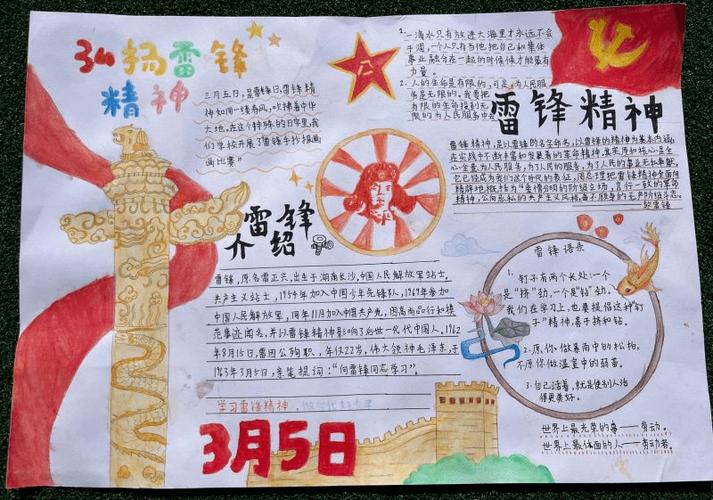 弘扬雷锋
精神
三月五日，是雷锋日，雷锋精
神如同一缕春风，吹拂着中华
大地，在这个特殊的日子里，我
们学校开展了雷锋手抄报画
画比赛。
八一
1.一滴水只有放进大海里才永远不会
干涸，一个人只有当他把自己和集体
事业融合在一起的时候才能最有
力量。
2.人的生命是有限的，可是，为人民服
务是无限的。我要把
有限的生命投到无
限的为人民服务中去
雷锋精神
雷锋精神，是以雷锋的名字命名，以雷锋的精神为基本内涵，
在实践中不断丰富和发展着的革命精神，其实质和核心是全
心全意为人民服务，为了人民的事业无私奉献，
雷锋
介绍
雷锋，原名雷正兴，出生于湖南长沙，中国人民解放军战士，
共产主义战士，1954年加入中国少年先锋队，1960年参加
中国人民解放军，同年11月加入中国共产党，因高尚品行和模
范事迹闻名，并以雷锋精神影响了后世一代代中国人。1962
年8月15日，雷因公殉职，年仅22岁，伟大领袖毛泽东，于
1963年3月5日，亲笔题词：“向雷锋同志学习”。
学习雷锋精神
3月5日
雷锋语录
1.钉子有两个长处：一个
是“挤”劲，一个是“钻”劲。
我们在学习上，也要提倡这种“钉
子”精神，善于挤和钻。
2.愿你做暴雨中的松柏，
不愿你做温室中的弱苗。
3.自己活着，就是使别人活
得更美好。
世界上最光荣的事——劳动。
世界上最体面的人——劳动者。